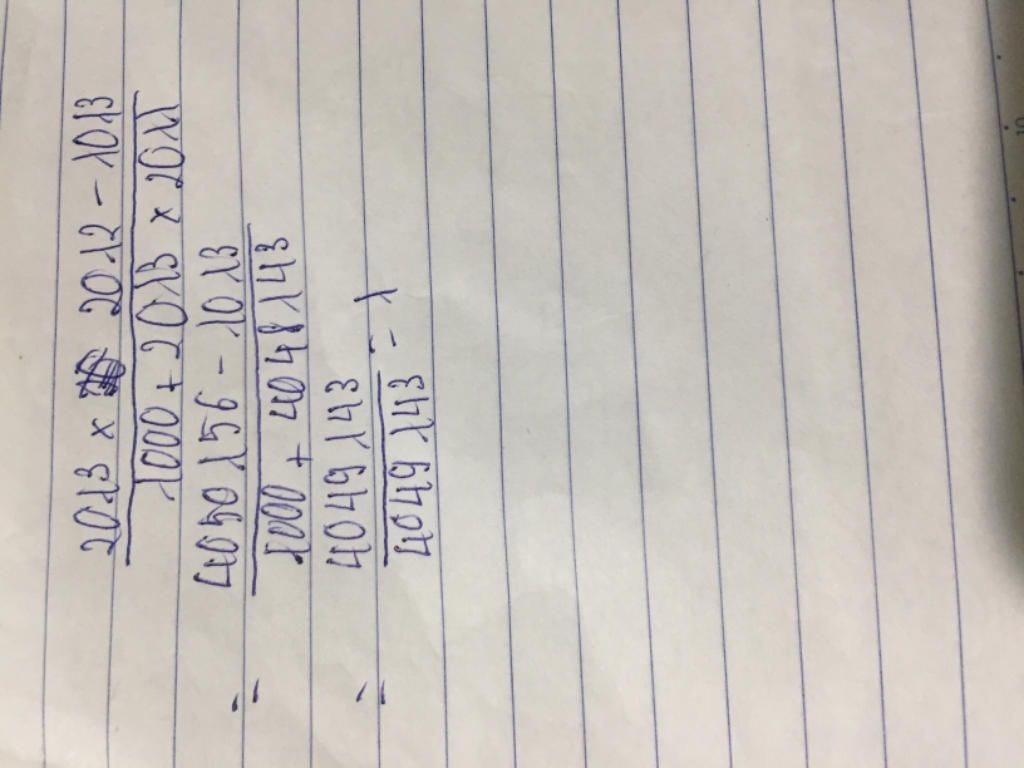 2013 x 2012 - 1013
1000 + 2013 x 2011
= 4050156 - 1013
1000 + 4048143
= 4049143
4049143 = 1